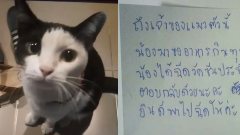 ถึงเจ้าของแมวตัวนี้
น้องมาขออาหารกินทุก
น้องได้ฉีดวัคซีนประจำ
ตอบกลับด้วยนะคะ
ยินดีพาไปฉีดให้ค่ะ